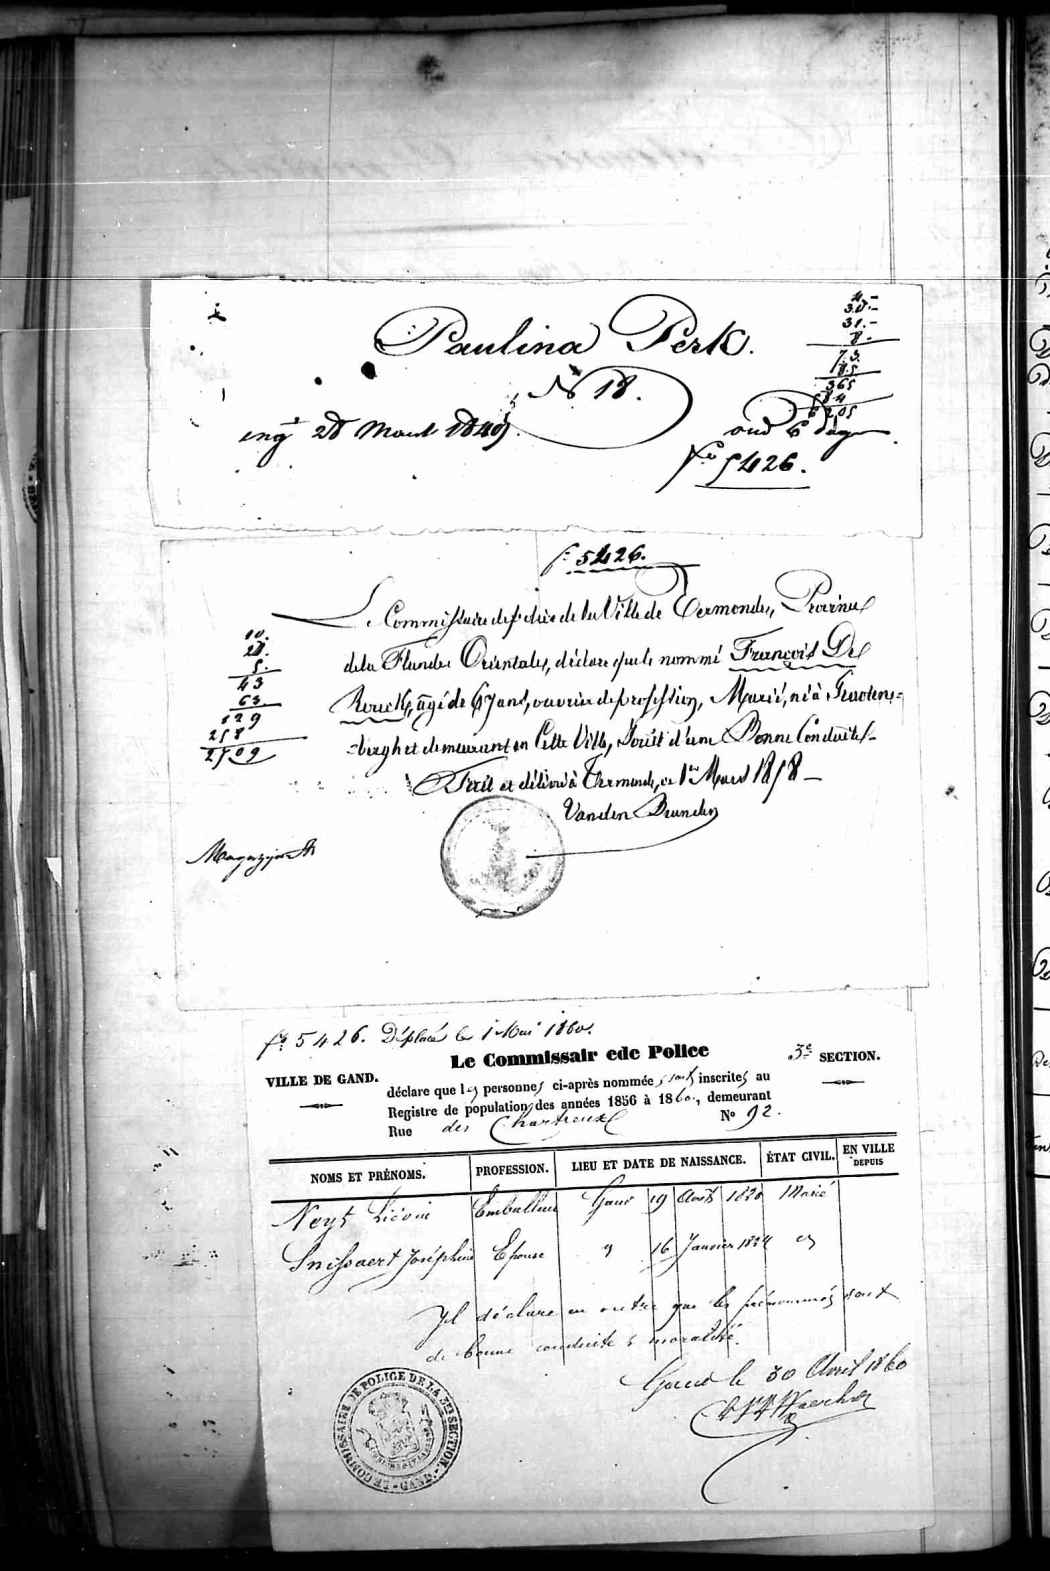 Paulina Perk.
No 18.
4.-
31.-
8.-
73.
365
oud 6 dagen
fo 5426.
f: 5426.
Le Commissaire de police de la Ville de Termonde, Province
de la Flandre Orientale, déclare que le nommé François De
âgé de 67 ans, ouvrier de profession, Marié, né à
et demeurant en Cette Ville, Jouit d'une Bonne Conduite
Fait et délivré à Termonde, ce 1er Mars 1858
Vanden
10.
28.
5.
43
63
129
258
2709
fo 5426. Déplacé le 1 Mai 1860.
Le Commissair ede Police
VILLE DE GAND.
3e SECTION.
déclare que les personnes ci-après nommées sont inscrites au
Registre de population des années 1856 à 1860, demeurant
Rue des Chartreux No 92.
NOMS ET PRÉNOMS. PROFESSION. LIEU ET DATE DE NAISSANCE. ÉTAT CIVIL. EN VILLE DEPUIS
Neyt Liévin Emballeur Gand 19 Août 1820 Marié
Joséphine Epouse " 16 Janvier 1824 "
Il déclare en outre que les prénommés sont
de bonne conduite & moralité.
Gand le 30 Avril 1860
LE COMMISSAIRE DE POLICE DE LA 3ME SECTION. GAND.